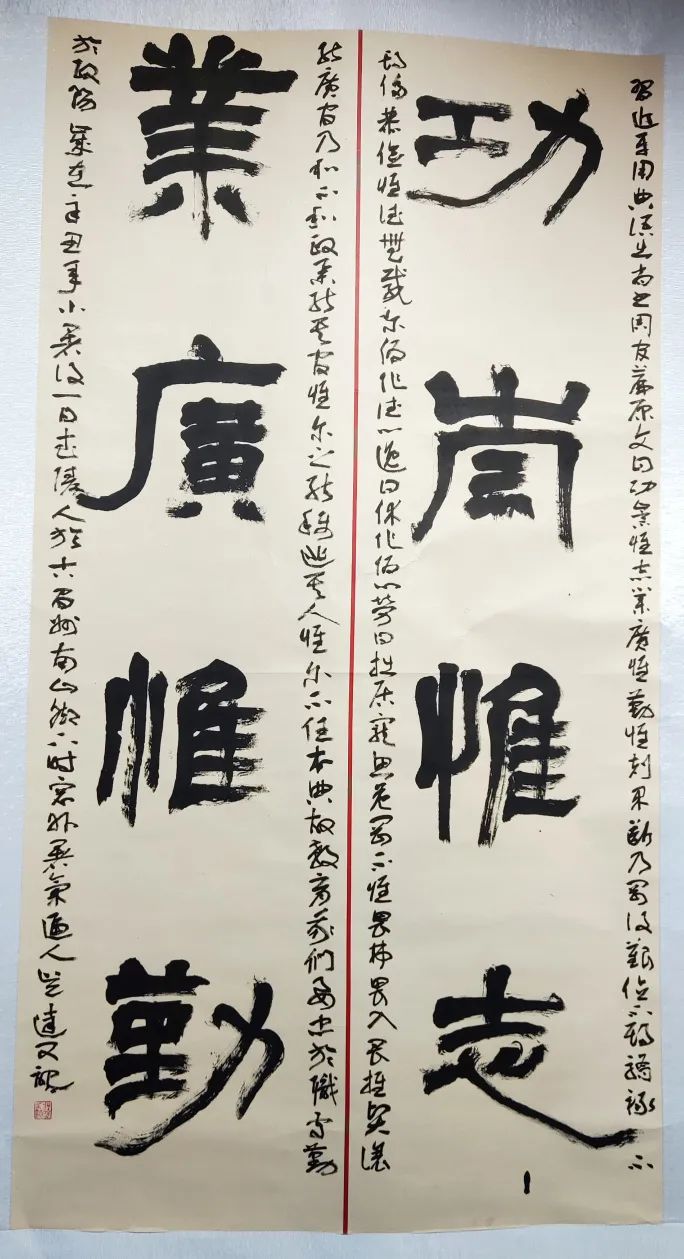 習近平用典語出尚書周官篇原文曰功崇惟志業廣惟勤惟剋果斷乃罔後艱位不期驕祿不
功崇惟志
期侈恭儉惟德無載爾偽作德心逸日休作偽心勞日拙居寵思危罔不惟畏弗畏入畏推賢讓
能廣官乃和不和政舉能其官惟爾之能稱匪其人惟爾不任本典故教育我們要忠於職守勤
業廣惟勤
於政務歲在辛丑年小暑後一日人於州南山時窗外暑氣逼人達又記